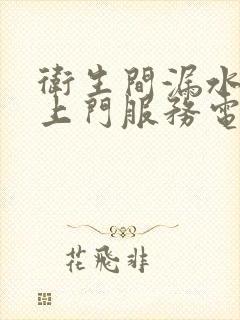 衛生間漏水
上門服務電
花飛非